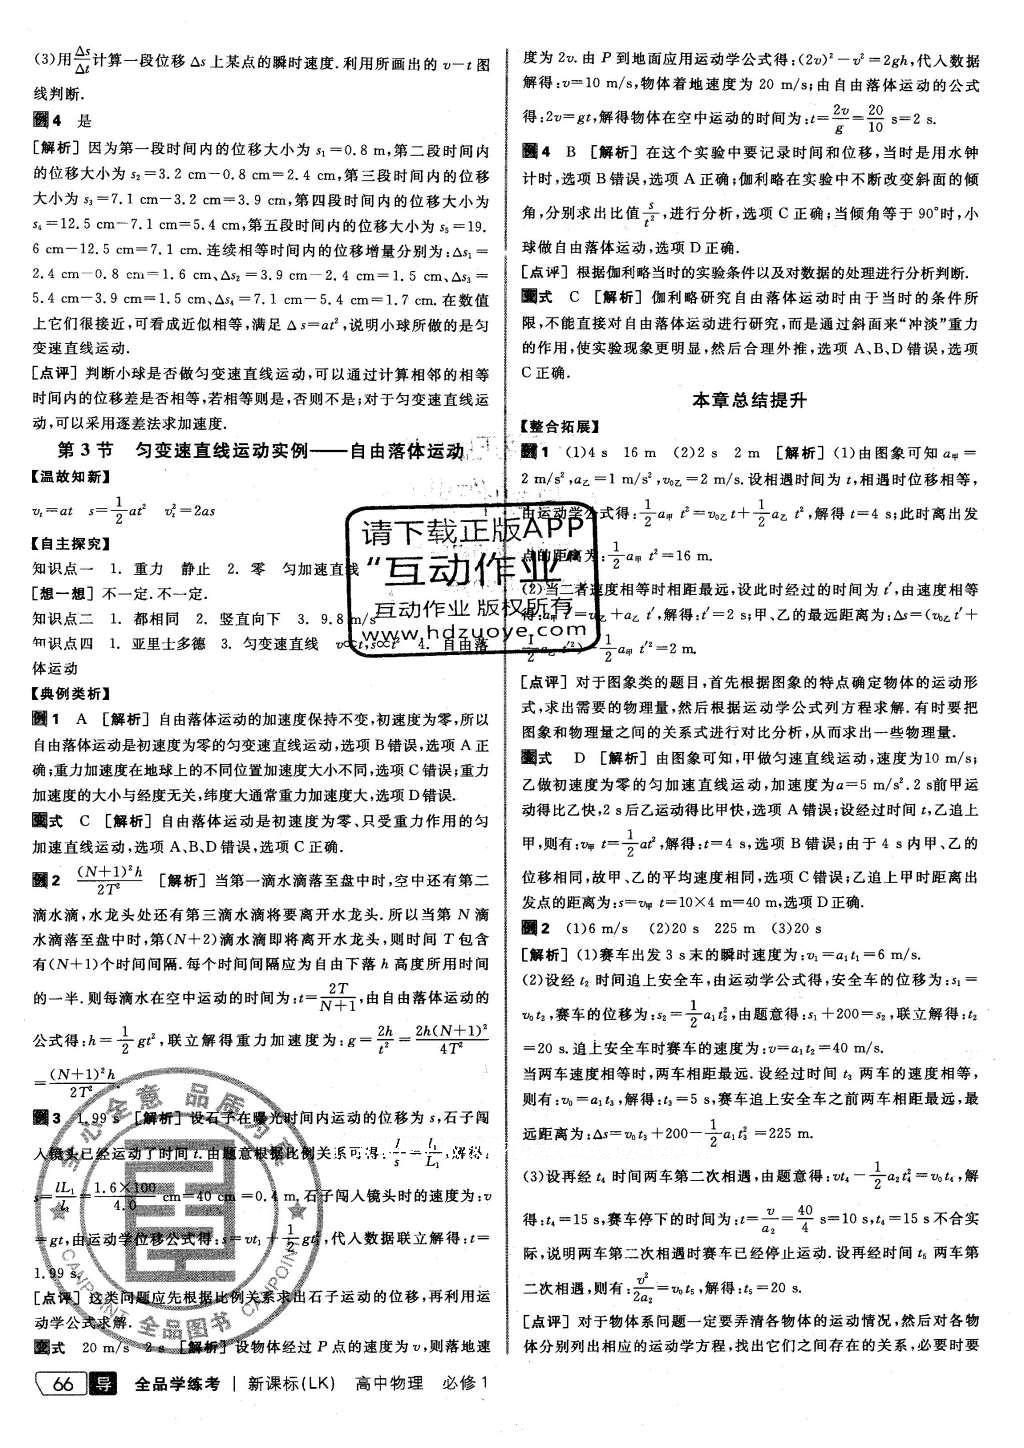 (3)用Δs/Δt计算一段位移 Δs 上某点的瞬时速度.利用所画出的 v−t 图
线判断.
例4 是
[解析] 因为第一段时间内的位移大小为 s₁=0.8 m,第二段时间内
的位移大小为 s₂=3.2 cm−0.8 cm=2.4 cm,第三段时间内的位移
大小为 s₃=7.1 cm−3.2 cm=3.9 cm,第四段时间内的位移大小为
s₄=12.5 cm−7.1 cm=5.4 cm,第五段时间内的位移大小为 s₅=19.
6 cm−12.5 cm=7.1 cm. 连续相等时间内的位移增量分别为:Δs₁=
2.4 cm−0.8 cm=1.6 cm、Δs₂=3.9 cm−2.4 cm=1.5 cm、Δs₃=
5.4 cm−3.9 cm=1.5 cm、Δs₄=7.1 cm−5.4 cm=1.7 cm. 在数值
上它们很接近,可看成近似相等,满足 Δs=at²,说明小球所做的是匀
变速直线运动.
[点评] 判断小球是否做匀变速直线运动,可以通过计算相邻的相等
时间内的位移差是否相等,若相等则是,否则不是;对于匀变速直线运
动,可以采用逐差法求加速度.
第3节 匀变速直线运动实例——自由落体运动
【温故知新】
vₜ=at s=1/2at² vₜ²=2as
【自主探究】
知识点一 1. 重力 静止 2. 零 匀加速直线
[想一想] 不一定.不一定.
知识点二 1. 都相同 2. 竖直向下 3. 9.8 m/s
知识点四 1. 亚里士多德 3. 匀变速直线 v∝t,s∝t² 4. 自由落
体运动
【典例类析】
例1 A [解析] 自由落体运动的加速度保持不变,初速度为零,所以
自由落体运动是初速度为零的匀变速直线运动,选项 B 错误,选项 A 正
确;重力加速度在地球上的不同位置加速度大小不同,选项 C 错误;重力
加速度的大小与经度无关,纬度大通常重力加速度大,选项 D 错误.
变式 C [解析] 自由落体运动是初速度为零、只受重力作用的匀
加速直线运动,选项 A、B、D 错误,选项 C 正确.
例2 (N+1)²h/2T² [解析] 当第一滴水滴落至盘中时,空中还有第二
滴水滴,水龙头处还有第三滴水滴将要离开水龙头. 所以当第 N 滴
水滴落至盘中时,第(N+2)滴水滴即将离开水龙头,则时间 T 包含
有(N+1)个时间间隔.每个时间间隔应为自由下落 h 高度所用时间
的一半. 则每滴水在空中运动的时间为:t=2T/N+1,由自由落体运动的
公式得:h=1/2gt²,联立解得重力加速度为:g=2h/t²=2h(N+1)²/4T²
=(N+1)²h/2T².
例3 1.99 s [解析] 设石子在曝光时间内运动的位移为 s,石子闯
入镜头已经运动了时间 t.由题意根据比例关系可得:l/s=l₁/L₁,解得:
s=lL₁/l₁=1.6×100/4.0 cm=40 cm=0.4 m. 石子闯入镜头时的速度为:v
=gt,由运动学位移公式得:s=vt₁+1/2gt₁²,代入数据联立解得:t=
1.99 s.
[点评] 这类问题应先根据比例关系求出石子运动的位移,再利用运
动学公式求解.
变式 20 m/s 2 s [解析] 设物体经过 P 点的速度为 v,则落地速
度为 2v. 由 P 到地面应用运动学公式得:(2v)²−v²=2gh,代入数据
解得:v=10 m/s,物体着地速度为 20 m/s;由自由落体运动的公式
得:2v=gt,解得物体在空中运动的时间为:t=2v/g=20/10 s=2 s.
例4 B [解析] 在这个实验中要记录时间和位移,当时是用水钟
计时,选项 B 错误,选项 A 正确;伽利略在实验中不断改变斜面的倾
角,分别求出比值s/t²,进行分析,选项 C 正确;当倾角等于 90°时,小
球做自由落体运动,选项 D 正确.
[点评] 根据伽利略当时的实验条件以及对数据的处理进行分析判断.
变式 C [解析] 伽利略研究自由落体运动时由于当时的条件所
限,不能直接对自由落体运动进行研究,而是通过斜面来“冲淡”重力
的作用,使实验现象更明显,然后合理外推,选项 A、B、D 错误,选项
C 正确.
本章总结提升
【整合拓展】
例1 (1)4 s 16 m (2)2 s 2 m [解析] (1)由图象可知 a甲=
2 m/s²,a乙=1 m/s²,v₀乙=2 m/s. 设相遇时间为 t,相遇时位移相等,
由运动学公式得:1/2a甲 t²=v₀乙 t+1/2a乙 t²,解得 t=4 s;此时离出发
点的距离为:1/2a甲 t²=16 m.
(2)当二者速度相等时相距最远,设此时经过的时间为 t′,由速度相等
得:a甲 t′=v₀乙+a乙 t′,解得:t′=2 s;甲、乙的最远距离为:Δs=(v₀乙 t′+
1/2a乙 t′²)−1/2a甲 t′²=2 m.
[点评] 对于图象类的题目,首先根据图象的特点确定物体的运动形
式,求出需要的物理量,然后根据运动学公式列方程求解. 有时要把
图象和物理量之间的关系式进行对比分析,从而求出一些物理量.
变式 D [解析] 由图象可知,甲做匀速直线运动,速度为10 m/s;
乙做初速度为零的匀加速直线运动,加速度为a=5 m/s². 2 s前甲运
动得比乙快,2 s 后乙运动得比甲快,选项 A 错误;设经过时间 t,乙追上
甲,则有:v甲 t=1/2at²,解得:t=4 s,选项 B 错误;由于 4 s 内甲、乙的
位移相同,故甲、乙的平均速度相同,选项 C 错误;乙追上甲时距离出
发点的距离为:s=v甲 t=10×4 m=40 m,选项 D 正确.
例2 (1)6 m/s (2)20 s 225 m (3)20 s
[解析] (1)赛车出发 3 s 末的瞬时速度为:v₁=a₁t₁=6 m/s.
(2)设经 t₂ 时间追上安全车,由运动学公式得,安全车的位移为:s₁=
v₀t₂,赛车的位移为:s₂=1/2a₁t₂²,由题意得:s₁+200=s₂,联立解得:t₂
=20 s. 追上安全车时赛车的速度为:v=a₁t₂=40 m/s.
当两车速度相等时,两车相距最远. 设经过时间 t₃ 两车的速度相等,
则有:v₀=a₁t₃,解得:t₃=5 s,赛车追上安全车之前两车相距最远,最
远距离为:Δs=v₀t₃+200−1/2a₁t₃²=225 m.
(3)设再经 t₄ 时间两车第二次相遇,由题意得:vt₄−1/2a₂t₄²=v₀t₄,解
得:t₄=15 s,赛车停下的时间为:t=v/a₂=40/4 s=10 s,t₄=15 s 不合实
际,说明两车第二次相遇时赛车已经停止运动. 设再经时间 t₅ 两车第
二次相遇,则有:v²/2a₂=v₀t₅,解得:t₅=20 s.
[点评] 对于物体系问题一定要弄清各物体的运动情况,然后对各物
体分别列出相应的运动学方程,找出它们之间存在的关系,必要时要
请下载正版APP
“互动作业”
互动作业 版权所有
www.hdzuoye.com
全心全意 品质为真
CANPOINT 全品图书 CANPOINT
66 导 全品学练考 | 新课标(LK) 高中物理 必修1